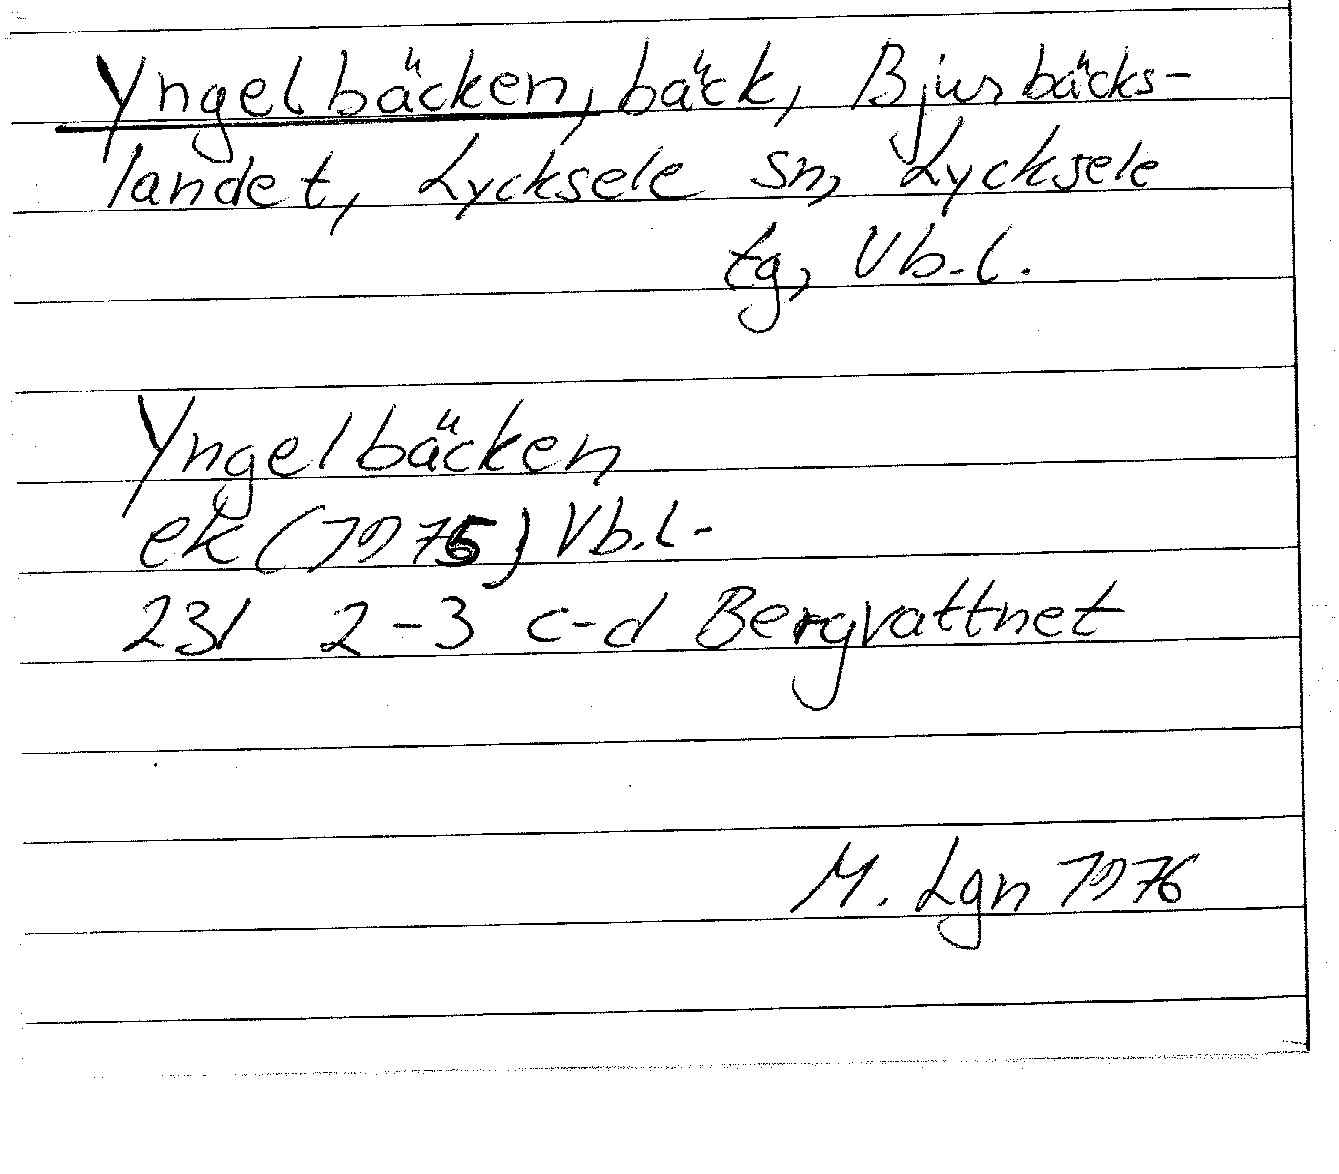 Yngelbäcken, bäck, Bjurbäcks-
landet, Lycksele sn, Lycksele
tg, Vb.l.
Yngelbäcken
ek (1975) Vb.l.
23I 2-3 c-d Bergvattnet
M. Lgn 1976